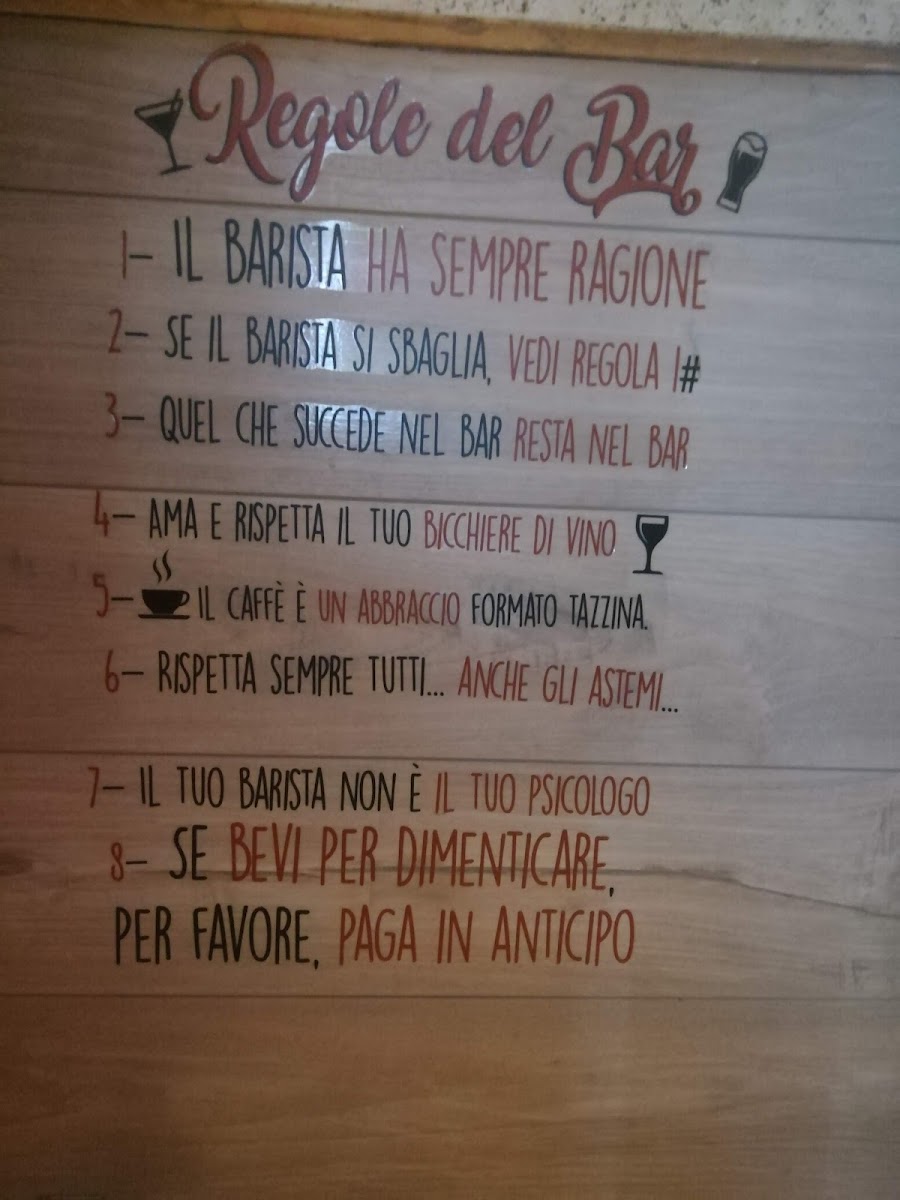 Regole del Bar
1- IL BARISTA HA SEMPRE RAGIONE
2- SE IL BARISTA SI SBAGLIA, VEDI REGOLA 1#
3- QUEL CHE SUCCEDE NEL BAR RESTA NEL BAR
4- AMA E RISPETTA IL TUO BICCHIERE DI VINO
5- IL CAFFÈ È UN ABBRACCIO FORMATO TAZZINA.
6- RISPETTA SEMPRE TUTTI... ANCHE GLI ASTEMI...
7- IL TUO BARISTA NON È IL TUO PSICOLOGO
8- SE BEVI PER DIMENTICARE,
PER FAVORE, PAGA IN ANTICIPO